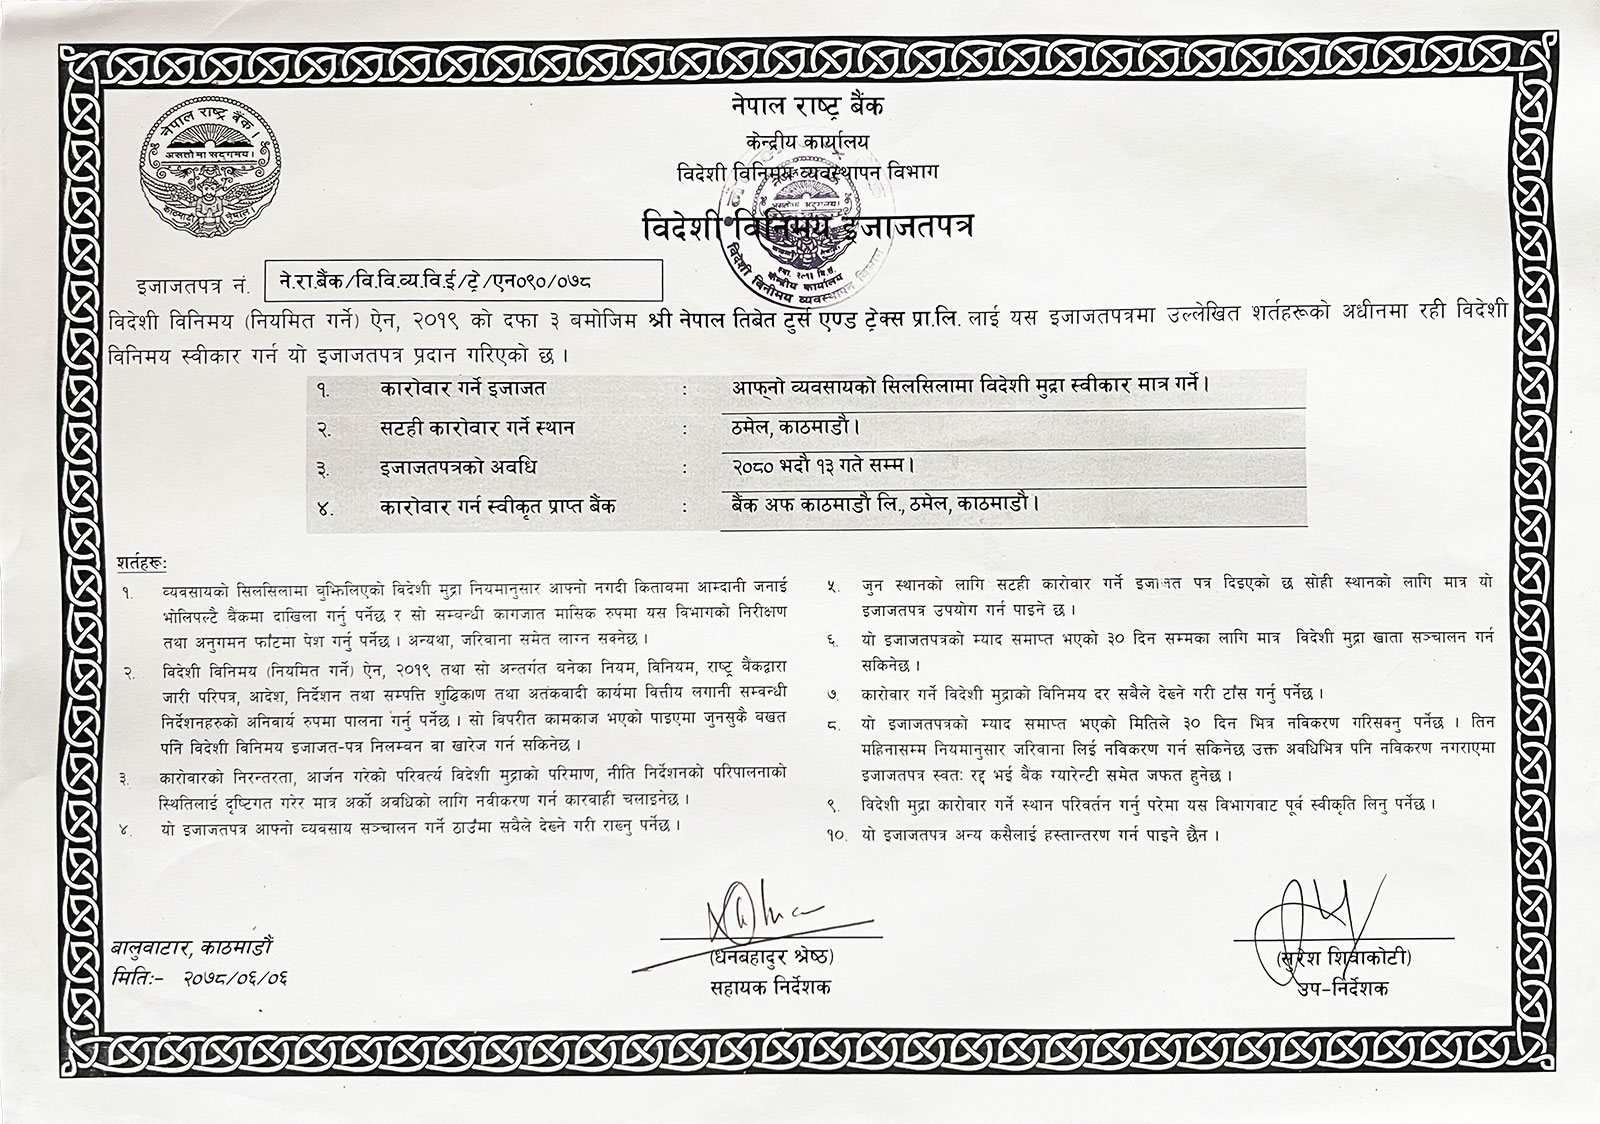 नेपाल राष्ट्र बैंक
केन्द्रीय कार्यालय
विदेशी विनिमय व्यवस्थापन विभाग
विदेशी विनिमय इजाजतपत्र
नेपाल राष्ट्र बैंक।
असतोमा सद्गमय।
काठमाडौं नेपाल।
केन्द्रीय कार्यालय
विदेशी विनिमय व्यवस्थापन विभाग
इजाजतपत्र नं. ने.रा.बैंक/वि.वि.व्य.वि.ई/ट्रे/एन०९०/०७८
विदेशी विनिमय (नियमित गर्ने) ऐन, २०१९ को दफा ३ बमोजिम श्री नेपाल तिबेत टुर्स एण्ड ट्रेक्स प्रा.लि. लाई यस इजाजतपत्रमा उल्लेखित शर्तहरूको अधीनमा रही विदेशी
विनिमय स्वीकार गर्न यो इजाजतपत्र प्रदान गरिएको छ ।
१. कारोवार गर्ने इजाजत : आफ्नो व्यवसायको सिलसिलामा विदेशी मुद्रा स्वीकार मात्र गर्ने।
२. सटही कारोवार गर्ने स्थान : ठमेल, काठमाडौ।
३. इजाजतपत्रको अवधि : २०८० भदौ १३ गते सम्म।
४. कारोवार गर्न स्वीकृत प्राप्त बैंक : बैंक अफ काठमाडौ लि., ठमेल, काठमाडौ।
शर्तहरू:
१. व्यवसायको सिलसिलामा बुझिलिएको विदेशी मुद्रा नियमानुसार आफ्नो नगदी कितावमा आम्दानी जनाई
भोलिपल्टै बैंकमा दाखिला गर्नु पर्नेछ र सो सम्बन्धी कागजात मासिक रुपमा यस विभागको निरीक्षण
तथा अनुगमन फाँटमा पेश गर्नु पर्नेछ । अन्यथा, जरिवाना समेत लाग्न सक्नेछ ।
२. विदेशी विनिमय (नियमित गर्ने) ऐन, २०१९ तथा सो अन्तर्गत बनेका नियम, विनियम, राष्ट्र बैंकद्वारा
जारी परिपत्र, आदेश, निर्देशन तथा सम्पत्ति शुद्धिकाण तथा अतंकवादी कार्यमा वित्तीय लगानी सम्बन्धी
निर्देशनहरुको अनिवार्य रुपमा पालना गर्नु पर्नेछ । सो विपरीत कामकाज भएको पाइएमा जुनसुकै बखत
पनि विदेशी विनिमय इजाजत-पत्र निलम्वन वा खारेज गर्न सकिनेछ ।
३. कारोवारको निरन्तरता, आर्जन गरेको परिवर्त्य विदेशी मुद्राको परिमाण, नीति निर्देशनको परिपालनाको
स्थितिलाई दृष्टिगत गरेर मात्र अर्को अवधिको लागि नवीकरण गर्न कारवाही चलाइनेछ ।
४. यो इजाजतपत्र आफ्नो व्यवसाय सञ्चालन गर्ने ठाउँमा सवैले देख्ने गरी राख्नु पर्नेछ ।
५. जुन स्थानको लागि सटही कारोवार गर्ने इजाजत पत्र दिइएको छ सोही स्थानको लागि मात्र यो
इजाजतपत्र उपयोग गर्न पाइने छ ।
६. यो इजाजतपत्रको म्याद समाप्त भएको ३० दिन सम्मका लागि मात्र विदेशी मुद्रा खाता सञ्चालन गर्न
सकिनेछ ।
७. कारोवार गर्ने विदेशी मुद्राको विनिमय दर सवैले देख्ने गरी टाँस गर्नु पर्नेछ ।
८. यो इजाजतपत्रको म्याद समाप्त भएको मितिले ३० दिन भित्र नविकरण गरिसक्नु पर्नेछ । तिन
महिनासम्म नियमानुसार जरिवाना लिई नविकरण गर्न सकिनेछ उक्त अवधिभित्र पनि नविकरण नगराएमा
इजाजतपत्र स्वतः रद्द भई बैंक ग्यारेन्टी समेत जफत हुनेछ ।
९. विदेशी मुद्रा कारोवार गर्ने स्थान परिवर्तन गर्नु परेमा यस विभागवाट पूर्व स्वीकृति लिनु पर्नेछ ।
१०. यो इजाजतपत्र अन्य कसैलाई हस्तान्तरण गर्न पाइने छैन ।
बालुवाटार, काठमाडौं
मिति:- २०७८/०६/०६
(धनबहादुर श्रेष्ठ)
सहायक निर्देशक
(सुरेश शिवाकोटी)
उप-निर्देशक